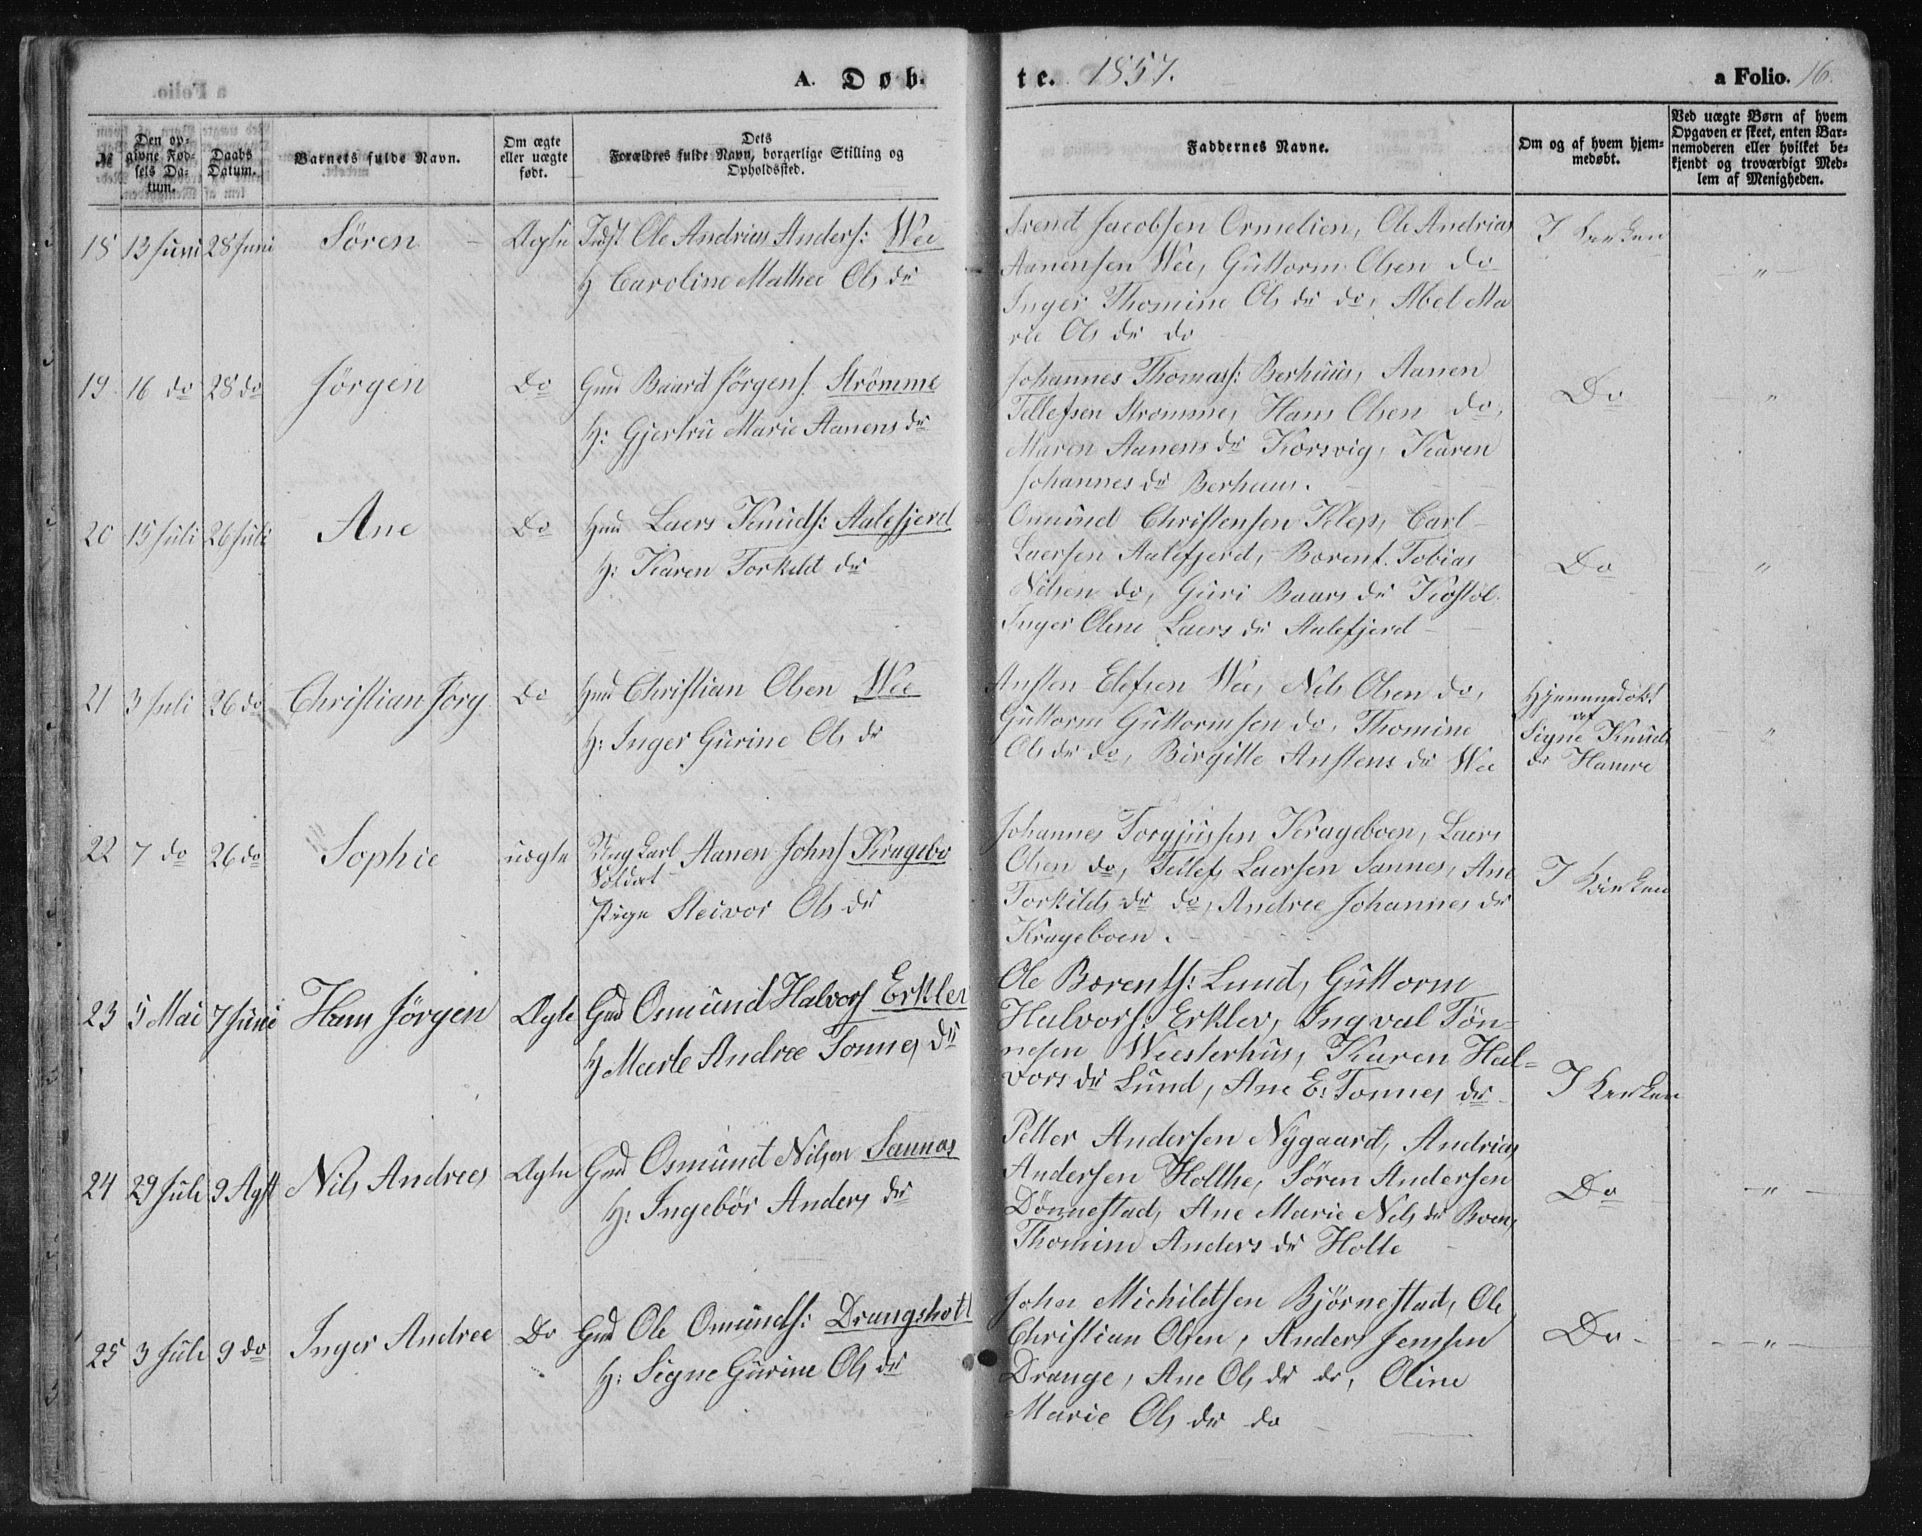 A. Døbte. 1857. a Folio. 16.
№
Den opgivne Fødsels Datum.
Daabs Datum.
Barnets fulde Navn.
Om ægte eller uægte født.
Dets Forældres fulde Navn, borgerlige Stilling og Opholdssted.
Faddernes Navne.
Om og af hvem hjemmedøbt.
Ved uægte Børn af hvem Opgaven er skeet, enten Barnemoderen eller hvilket bekjendt og troværdigt Medlem af Menigheden.
18 13 Juni 28 Juni Søren Ægte Ole Andrias Anders: Wee
H Caroline Mathee Ols dr
Svend Jacobsen Ormelien, Ole Andrias
Aanensen Wee, Guttorm Olsen do
Inger Thomine Ols dr do, Abel Ma
rie Ols dr do
I Kirken "
19. 16 do 28 do Jørgen Do Gmd Baard Jørgens. Strömme
H: Gjertru Marie Aanens dr
Johannes Thomass: Berhuus, Aanen
Tellefsen Stromme, Hans Olsen do,
Maren Aanens dr Korsvig, Karen
Johannes dr Berhuus.
Do "
20 15 Juli 26 Juli Ane Do Hmd Laers Knuds: Aalefjerd
H: Karen Torkild dr
Omund Christensen Klep, Carl
Laersen Aalefjerd, Borent Tobias
Nilsen do, Guri Baars dr Kostöl
Inger Oline Laers dr Aalefjerd
Do "
21 3 Juli 26 do Christian Jörg Do Hmd Christian Olsen Wee
H: Inger Gurine Ols dr
Ansten Elefsen Wee, Nils Olsen do,
Guttorm Guttormsen do, Thomine
Ols dr do, Birgitte Anstens dr Wee
Hjemmedöbt
af
Signe Knuds
dr Hamre
"
22 7 do 26 do Sophie uægte Ungkarl Aanen Johns Kragebo
Soldat
Pige Steivor Ols dr
Johannes Torgjussen Krageboen, Laers
Olsen do, Tellef Laersen Sannes, Ane
Torkilds dr do, Andree Johannes dr
Krageboen.
I Kirken
23 5 Mai 7 Juni Hans Jörgen Ægte Gmd Osmund Halvors Erklev
H Merte Andree Tonnes dr
Ole Borents: Lund, Guttorm
Halvors: Erklev, Ingval Tön-
nesen Westerhus, Karen Hal-
vors dr Lund, Ane E: Tonnes dr
I Kirken
24 29 Juli 9 Agst Nils Andreas Ægte Gmd Osmund Nilsen Sannes
H: Ingebör Anders dr
Petter Andersen Nygaard, Andrias
Andersen Holthe, Sören Andersen
Dönnestad, Ane Marie Nils dr Boen,
Thomine Anders dr Holte
Do "
25 3 Juli 9 do Inger Andree Do Gmd Ole Omunds: Drangsholt
H: Signe Gurine Ols dr
John Michildtsen Björnestad, Ole
Christian Olsen, Anders Jenssen
Drange, Ane Ols dr do, Oline
Marie Ols dr do
Do "